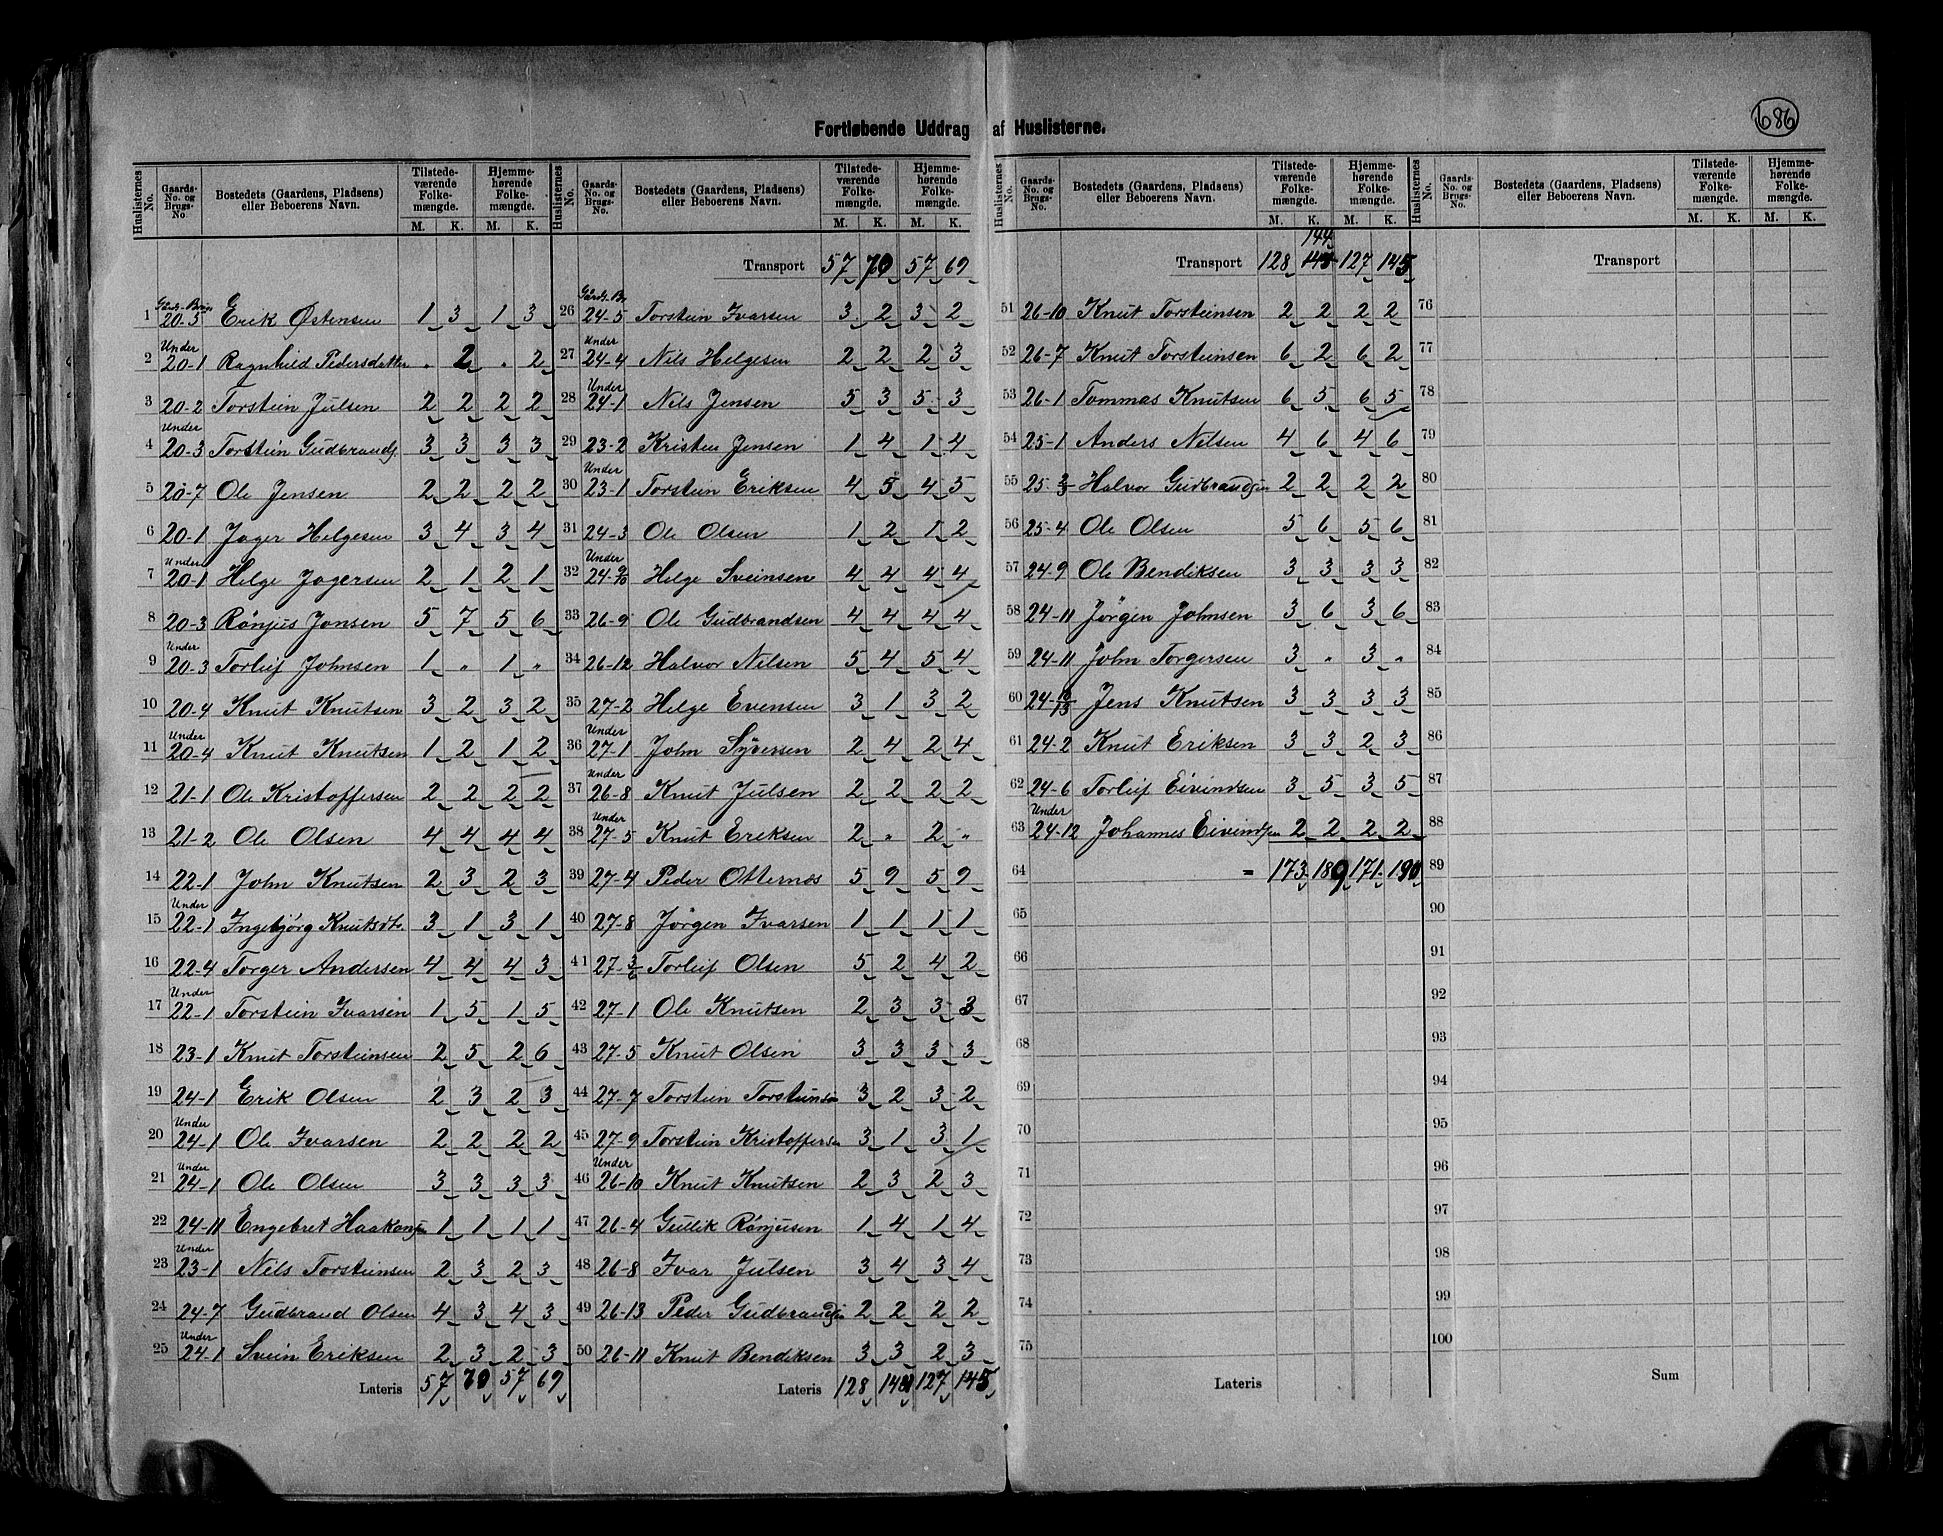 686
Fortløbende Uddrag af Huslisterne.
Huslisternes No. Gaards-No. og Brugs-No. Bostedets (Gaardens, Pladsens) eller Beboerens Navn. Tilstedeværende Folkemængde. M. K. Hjemmehørende Folkemængde. M. K.
Gårds- Brugs
1 20-5 Erik Østensen 1 3 1 3
Under
2 20-1 Ragnhild Pedersdatter . 2 . 2
3 20-2 Torstein Julsen 2 2 2 2
Under
4 20-3 Torstein Gudbrands. 3 3 3 3
5 20-7 Ole Jensen 2 2 2 2
6 20-1 Jøger Helgesen 3 4 3 4
Under
7 20-1 Helge Jøgersen 2 1 2 1
8 20-3 Rønjus Jonsen 5 7 5 6
Under
9 20-3 Torleif Johnsen 1 " 1 "
10 20-4 Knut Knutsen 3 2 3 2
Under
11 20-4 Knut Knutsen 1 2 1 2
12 21-1 Ole Kristoffersen 2 2 2 2
13 21-2 Ole Olsen 4 4 4 4
14 22-1 John Knutsen 2 3 2 3
Under
15 22-1 Ingebjørg Knutsdt. 3 1 3 1
16 22-4 Torger Andersen 4 4 4 3
Under
17 22-1 Torstein Ivarsen 1 5 1 5
18 23-1 Knut Torsteinsen 2 5 2 6
19 24-1 Erik Olsen 2 3 2 3
Under
20 24-1 Ole Ivarsen 2 2 2 2
Under
21 24-1 Ole Olsen 3 3 3 3
22 24-11 Engebret Haakonsen 1 1 1 1
Under
23 23-1 Nils Torsteinsen 2 3 2 3
24 24-7 Gudbrand Olsen 4 3 4 3
Under
25 24-1 Svein Eriksen 2 3 2 3
Lateris 57 70 57 69
Huslisternes No. Gaards-No. og Brugs-No. Bostedets (Gaardens, Pladsens) eller Beboerens Navn. Tilstedeværende Folkemængde. M. K. Hjemmehørende Folkemængde. M. K.
Transport 57 70 57 69
Gårds- Br
26 24-5 Torstein Ivarsen 3 2 3 2
Under
27 24-4 Nils Helgesen 2 2 2 3
Under
28 24-1 Nils Jensen 5 3 5 3
29 23-2 Kristen Jensen 1 4 1 4
Under
30 23-1 Torstein Eriksen 4 5 4 5
31 24-3 Ole Olsen 1 2 1 2
Under
32 24-9/10 Helge Sveinsen 4 4 4 4
33 26-9 Ole Gudbrandsen 4 4 4 4
34 26-12 Halvor Nilsen 5 4 5 4
35 27-2 Helge Evensen 3 1 3 2
Under
36 27-1 John Syversen 2 4 2 4
Under
37 26-8 Knut Julsen 2 2 2 2
Under
38 27-5 Knut Eriksen 2 " 2 "
39 27-4 Peder Otternæs 5 9 5 9
40 27-8 Jørgen Ivarsen 1 1 1 1
41 27-3/6 Torleif Olsen 5 2 4 2
42 27-1 Ole Knutsen 2 3 3 3
43 27-5 Knut Olsen 3 3 3 3
44 27-7 Torstein Torsteinsen 3 2 3 2
45 27-9 Torstein Kristoffersen 3 1 3 1
Under
46 26-10 Knut Knutsen 2 3 2 3
47 26-4 Gullik Rønjusen 1 4 1 4
48 26-8 Ivar Julsen 3 4 3 4
49 26-13 Peder Gudbrandsen 2 2 2 2
50 26-11 Knut Bendiksen 3 3 2 3
Lateris 128 144 127 145
Huslisternes No. Gaards-No. og Brugs-No. Bostedets (Gaardens, Pladsens) eller Beboerens Navn. Tilstedeværende Folkemængde. M. K. Hjemmehørende Folkemængde. M. K.
144
Transport 128 143 127 145
51 26-10 Knut Torsteinsen 2 2 2 2
52 26-7 Knut Torsteinsen 6 2 6 2
53 26-1 Tommas Knutsen 6 5 6 5
54 25-1 Anders Nilsen 4 6 4 6
55 25-2/3 Halvor Gudbrandsen 2 2 2 2
56 25-4 Ole Olsen 5 6 5 6
57 24-9 Ole Bendiksen 3 3 3 3
58 24-11 Jørgen Johnsen 3 6 3 6
59 24-11 John Torgersen 3 " 3 "
60 24- Jens Knutsen 3 3 3 3
61 24-2 Knut Eriksen 3 3 2 3
62 24-6 Torleif Eivindsen 3 5 3 5
Under
63 24-12 Johannes Eivindsen 2 2 2 2
64 = 173 189 171 190
65
66
67
68
69
70
71
72
73
74
75
Lateris
Huslisternes No. Gaards-No. og Brugs-No. Bostedets (Gaardens, Pladsens) eller Beboerens Navn. Tilstedeværende Folkemængde. M. K. Hjemmehørende Folkemængde. M. K.
Transport
76
77
78
79
80
81
82
83
84
85
86
87
88
89
90
91
92
93
94
95
96
97
98
99
100
Sum